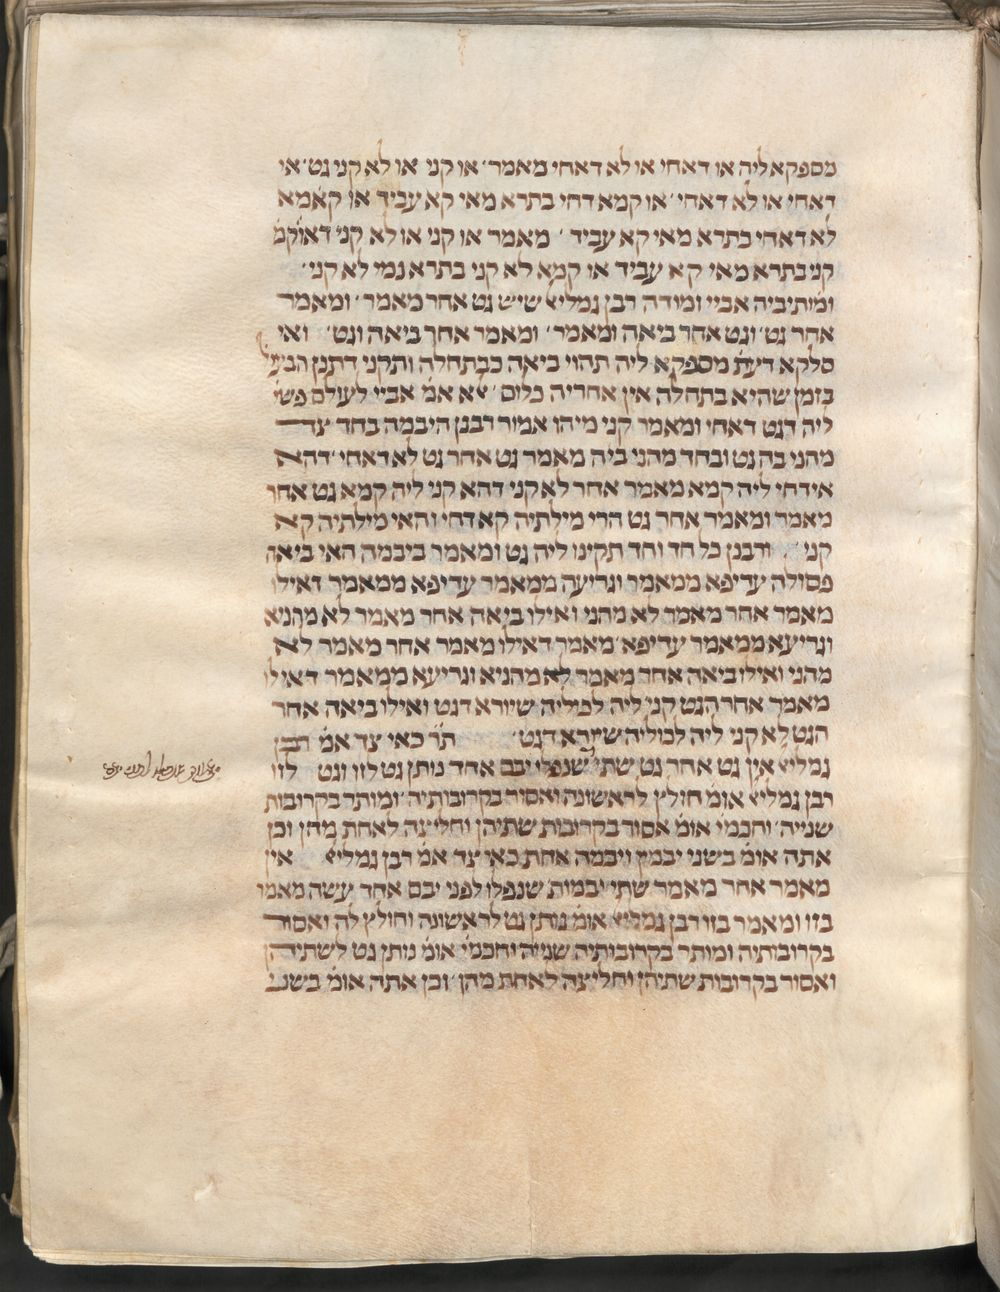 מספקא ליה או דאחי או לא דאחי מאמר׳ או קני׳ או לא קני גט׳ או
דאחי או לא דאחי׳ או קמא דחי בתרא מאי קא עביד או קאמא
לא דאחי בתרא מאי קא עביד ׳ מאמר או קני או לא קני׳ דאו קמ׳
קני בתרא מאי קא עביד או קמא לא קני בתרא נמי לא קני׳
ומותיביה אביי ומודה רבן גמליאל שיש גט אחר מאמר׳ ומאמר
אחר גט׳ וגט אחר ביאה ומאמר׳ ומאמר אחר ביאה וגט׳ ואי
סלקא דעת׳ מספקא ליה תהוי ביאה כבתחלה ותקני דתנן הבעיל׳
בזמן שהיא בתחלה אין אחריה כלום׳ אלא אמ׳ אביי לעולם פשי׳
ליה דגט דאחי ומאמר קני מיהו אמור רבנן היבמה בחד צד
מהני בה גט ובחד מהני ביה מאמר גט אחר גט לא דאחי׳ דהא
אידחי ליה קמא מאמר אחר לא קני דהא קני ליה קמא גט אחר
מאמר ומאמר אחר גט הרי מילתיה קא דחי והאי מילתיה קא
קני׳ ורבנן כל חד וחד תקינו ליה גט ומאמר ביבמה האי ביאה
פסולה עדיפא ממאמר וגריעה ממאמר עדיפא ממאמר דאילו
מאמר אחר מאמר לא מהני ואילו ביאה אחר מאמר לא מהניא
וגריעא ממאמר עדיפא׳ מאמר דאילו מאמר אחר מאמר לא
מהני ואילו ביאה אחר מאמר לא מהניא וגריעא ממאמר דאילו
מאמר אחר הגט קני ליה לכוליה שיורא דגט ואילו ביאה אחר
הגט לא קני ליה לכוליה שיורא דגט׳ ת״ר כאי צד אמ׳ רבן
גמליאל אין גט אחר גט שתי שנפלו יבם אחד נותן גט לזו וגט לזו
רבן גמליאל אומ׳ חולץ לראשונה ואסור בקרובותיה׳ ומותר בקרובות
שנייה׳ וחכמי׳ אומ׳ אסור בקרובות שתיהן וחליצה לאחת מהן וכן
אתה אומ׳ בשני יבמין ויבמה אחת כאי צד אמ׳ רבן גמליאל אין
מאמר אחר מאמר שתי יבמות׳ שנפלו לפני יבם אחד עשה מאמר
בזו ומאמר בזו רבן גמליאל אומ׳ נותן גט לראשונה וחולץ לה ואסור
בקרובותיה ומותר בקרובותיה שנייה וחכמי׳ אומ׳ נותן גט לשתיהן
ואסור בקרובות שתיהן וחליצה לאחת מהן׳ וכן אתה אומ׳ בשני